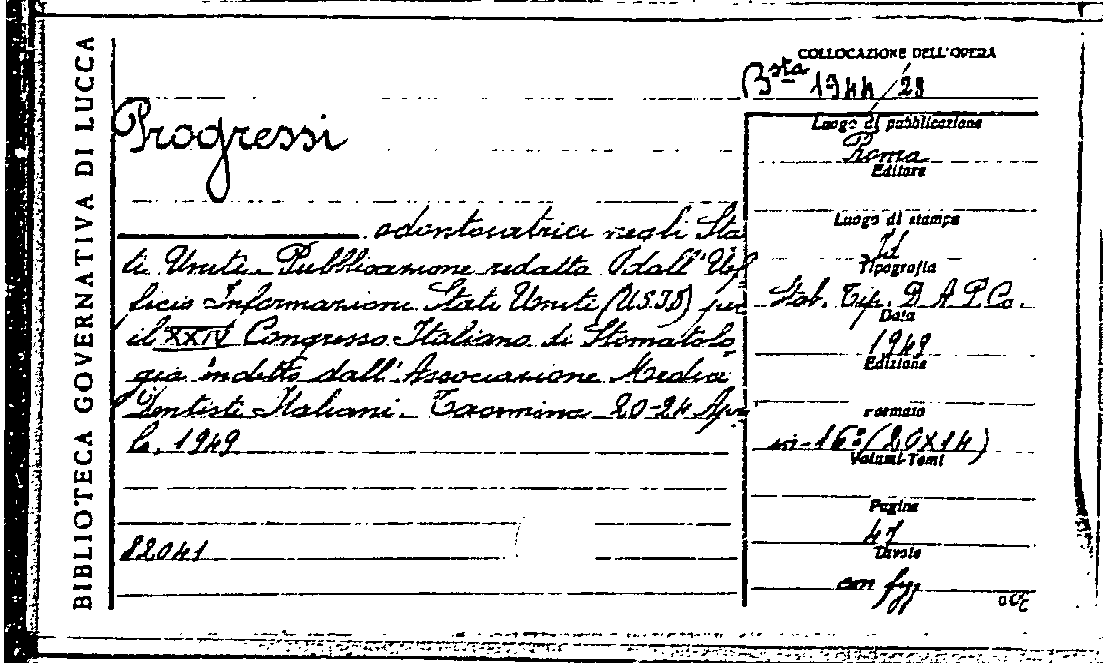 BIBLIOTECA GOVERNATIVA DI LUCCA
COLLOCAZIONE DELL'OPERA
Bsta 1944/28
Progressi
odontoiatrici negli Sta
ti Uniti. Pubblicazione redatta dall'Uf
ficio Informazione Stati Uniti (U.S.I.S) per
il XXIV Congresso Italiano di Stomatolo
gia indetto dall'Associazione Medici
Dentisti Italiani. Taormina 20-24 Apri
le, 1949
82041
Luogo di pubblicazione
Roma
Editore
Luogo di stampa
Id
Tipografia
Stab. Tip. D A P Co.
Data
1949
Edizione
Formato
in-16º (20x14)
Volumi-Tomi
Pagine
47
Tavole
con fig